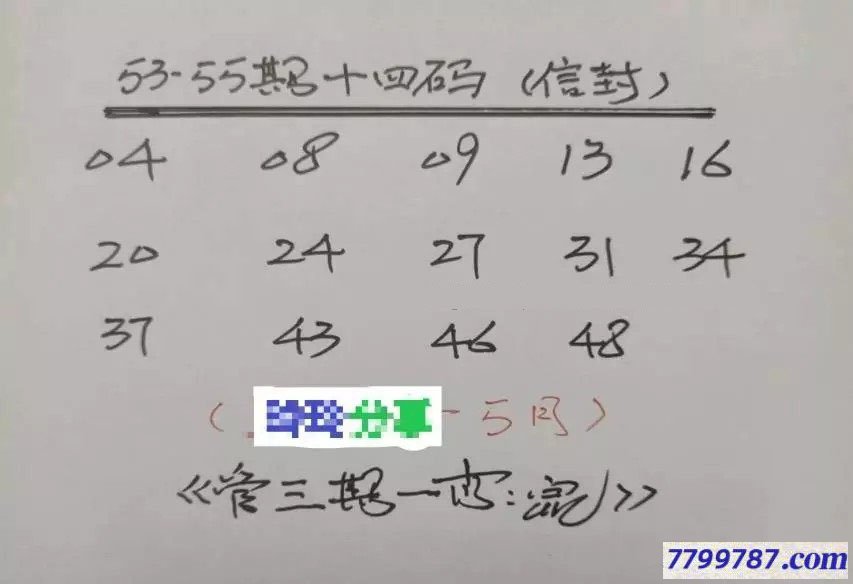 53-55期十四码(信封)
04 08 09 13 16
20 24 27 31 34
37 43 46 48
( 分享 - 5 )
《管三期一
7799787.com